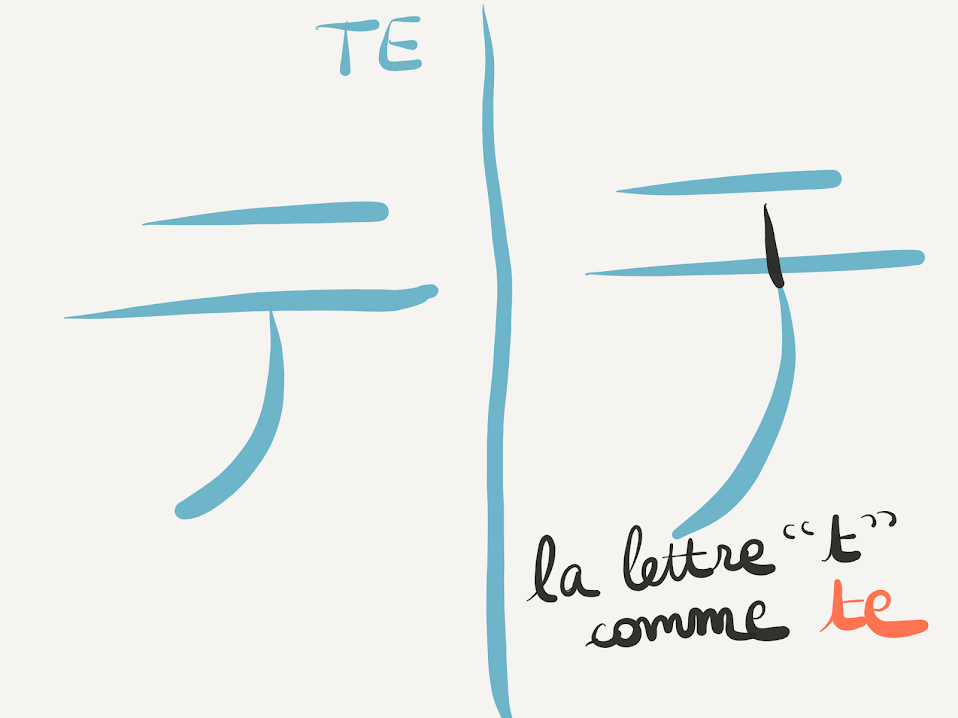 TE
テ
テ
la lettre “t”
comme te